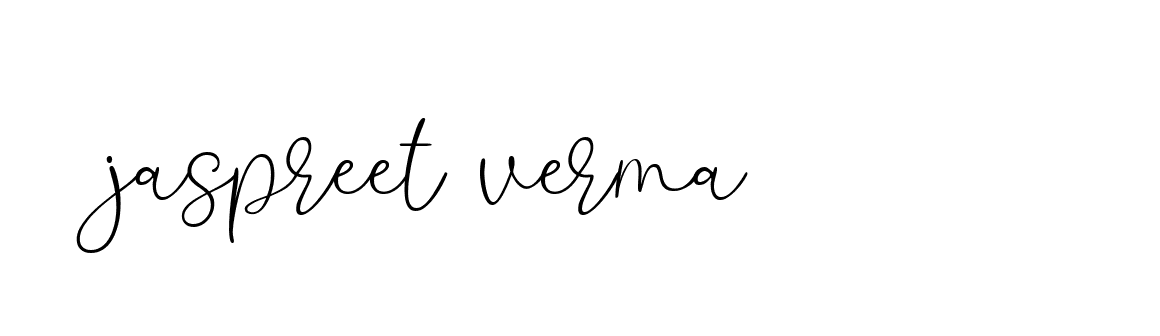 jaspreet verma